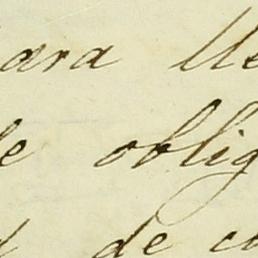 ara lle
le oblig
de co